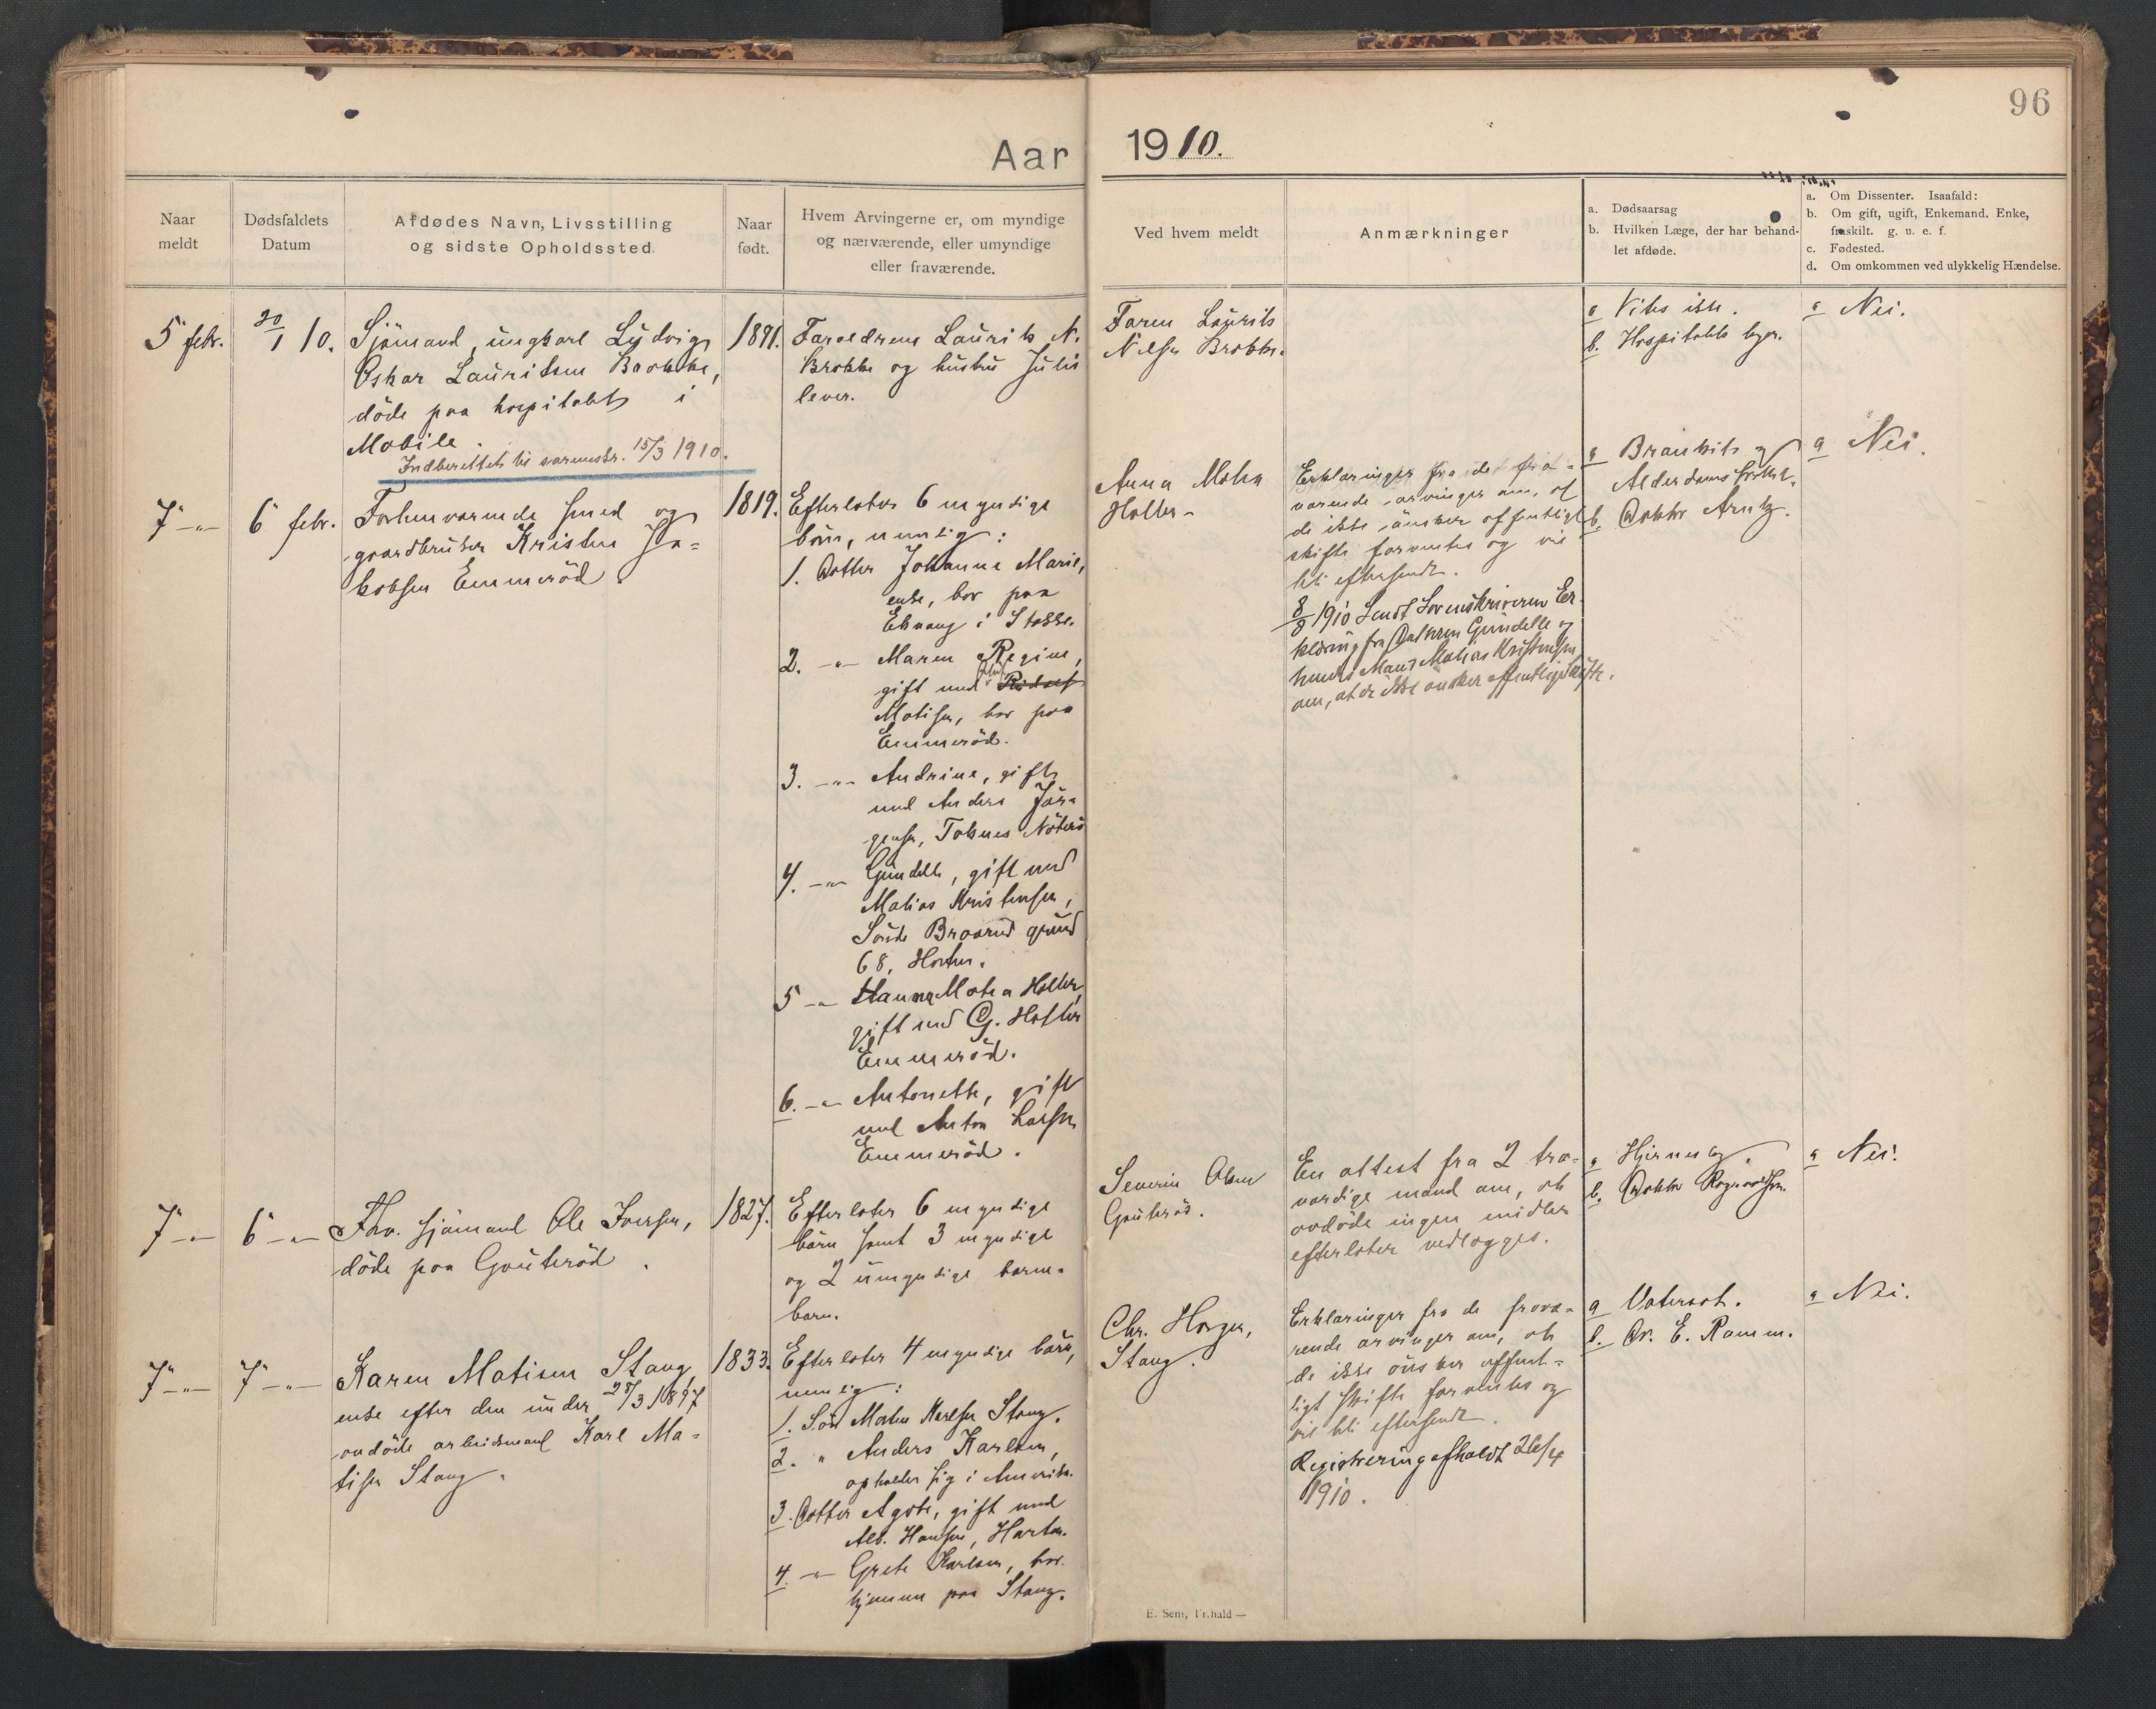 96
Aar 1910.
Naar meldt
Dødsfaldets Datum
Afdødes Navn, Livsstilling og sidste Opholdssted.
Naar født.
Hvem Arvingerne er, om myndige og nærværende, eller umyndige eller fraværende.
Ved hvem meldt
Anmærkninger
a. Dødsaarsag
b. Hvilken Læge, der har behandlet afdøde.
a. Om Dissenter. Isaafald:
b. Om gift, ugift, Enkemand, Enke, fraskilt. g. u. e. f.
c. Fødested.
d. Om omkommen ved ulykkelig Hændelse.
5 febr.
20/1 10.
Sjömand, ungkarl Ludvig
Oskar Lauritsen Brokke,
döde paa hospitalet i
Mobile.
Indberettet til sorenskr. 15/3 1910.
1891.
Foraldrene Laurits N.
Brokke og hustru Julie
lever.
Faren Laurits
Nilsen Brokke.
a Vites ikke.
b. Hospitalets læger.
a Nei.
7 -"-
6 febr.
Forhenvarende smed og
gaardbruker Kristen Ja=
kobsen Emmeröd.
1819.
Efterlater 6 myndige
börn, nemlig:
1. Datter Johanne Marie,
enke, bor paa
Eknang i Stokke.
2. -"- Maren Regine,
gift med Rudolf
Matisen, bor paa
Emmeröd.
3. -"- Andrine, gift
med Anders Jör=
gensen, Toknes Nöterö
4. -"- Gundelle, gift med
Matias Kristensen,
Söndre Braarud grund
68, Horten.
5 -"- Hanna Matea Holter,
gift med G. Holter
Emmeröd.
6. -"- Antonette, gift
med Anton Larsen
Emmeröd.
Anna Matea
Holter
Erklaringer fra de fra=
varende arvinger om, at
de ikke önsker offentligt
skifte forventes og vil
bli eftersendt.
8/8 1910 Sendt Sorenskriveren Er-
klæring fra Datteren Gundelle og
hendes Mand Matias Kristensen
om, at de ikke önsker offentligt Skifte.
a Brankits og
Alderdomssvækk.
b. Doktor Arntz.
a Nei.
7 -"-
6 -"-
Fhv. sjömand Ole Iversen,
döde paa Gouteröd.
1827.
Efterlater 6 myndige
börn samt 3 myndige
og 2 umyndige barne-
barn.
Severin Olsen
Gouteröd.
En attest fra 2 tro-
værdige mænd om, at
avdöde ingen midler
efterlater vedlægges.
a Hjerneslag.
b. Doktor Rognvaldsen.
a Nei.
7 -"-
7 -"-
Karen Matisen Stang,
enke efter den under 28/3 1897
avdöde arbeidsmand Karl Ma=
tisen Stang.
1833.
Efterlater 4 myndige börn,
nemlig:
1. Sön Martin Karlsen Stang.
2. " Anders Karlsen,
opholder sig i Amerika.
3. Datter Agate, gift med
Alb. Hansen, Horten.
4. -"- Grete Karlsen, bor
hjemme paa Stang.
Chr. Horgen,
Stang.
Erklaringer fra de fravæ-
rende arvinger om, at
de ikke önsker offent=
ligt skifte forventes og
vil bli eftersendt.
Registrering afholdt 26/4
1910.
a Vatersot.
b. Dr. E. Ramm.
a Nei.
E. Sem, Fr.hald —